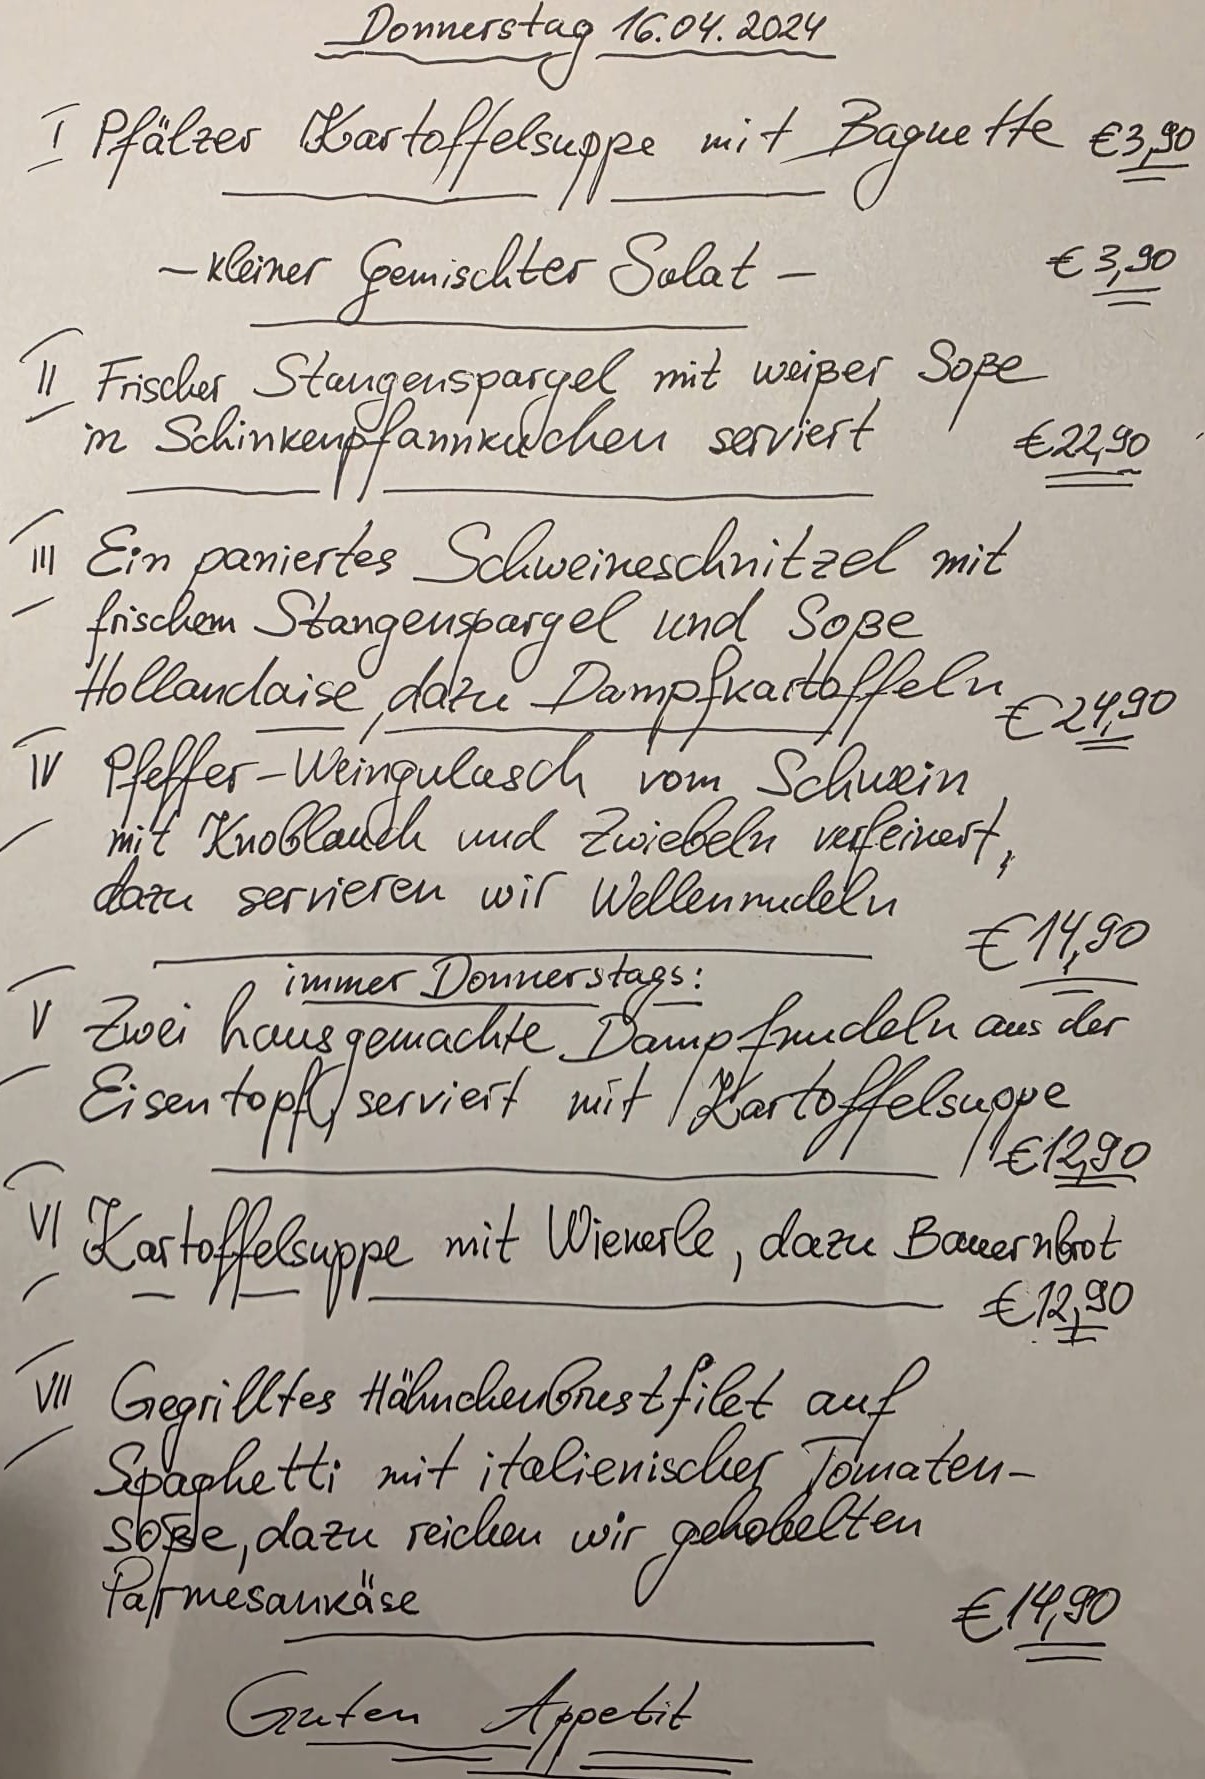 Donnerstag 16.04.2024
I Pfälzer Kartoffelsuppe mit Baguette €3,90
- kleiner Gemischter Salat - €3,90
II Frischer Stangenspargel mit weißer Soße
in Schinkenpfannkuchen serviert €22,90
III Ein paniertes Schweineschnitzel mit
frischem Stangenspargel und Soße
Hollandaise, dazu Dampfkartoffeln €24,90
IV Pfeffer-Weingulasch vom Schwein
mit Knoblauch und Zwiebeln verfeinert,
dazu servieren wir Wellennudeln
€14,90
immer Donnerstags:
V Zwei hausgemachte Dampfnudeln aus der
Eisentopf, serviert mit Kartoffelsuppe
€12,90
VI Kartoffelsuppe mit Wienerle, dazu Bauernbrot
€12,90
VII Gegrilltes Hähnchenbrustfilet auf
Spaghetti mit italienischer Tomaten-
soße, dazu reichen wir gehobelten
Parmesankäse €14,90
Guten Appetit